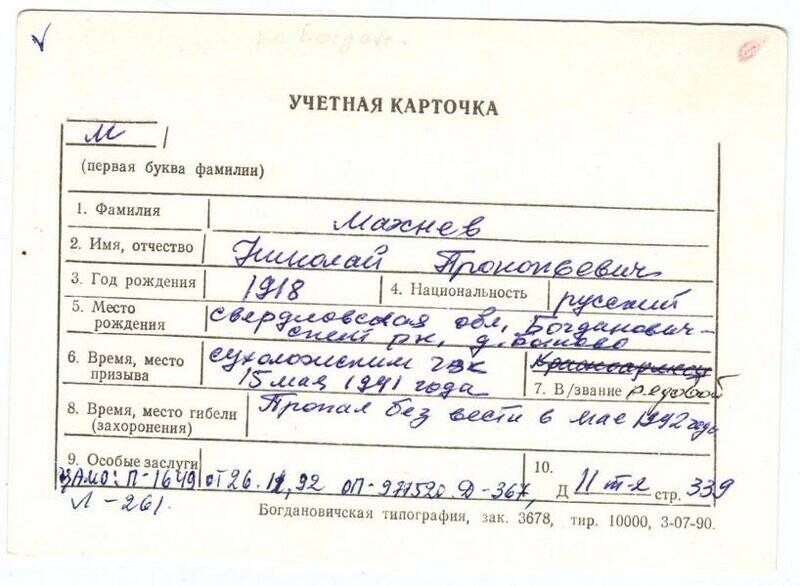 по Богдан.
УЧЕТНАЯ КАРТОЧКА
М
(первая буква фамилии)
1. Фамилия Махнев
2. Имя, отчество Николай Прокопьевич
3. Год рождения 1918 4. Национальность русский
5. Место рождения свердловская обл, Богданович-
ский рн, д. Быково
6. Время, место призыва сухоложским гвк
15 мая 1941 года
Красноармеец
7. В/звание рядовой
8. Время, место гибели (захоронения) Пропал без вести в мае 1942 года
9. Особые заслуги
ЦАМО: П-1649 от 26.12,92 ОП-977520 Д-367,
Л-261.
10.
Д II т-е стр. 339
Богдановичская типография, зак. 3678, тир. 10000, 3-07-90.